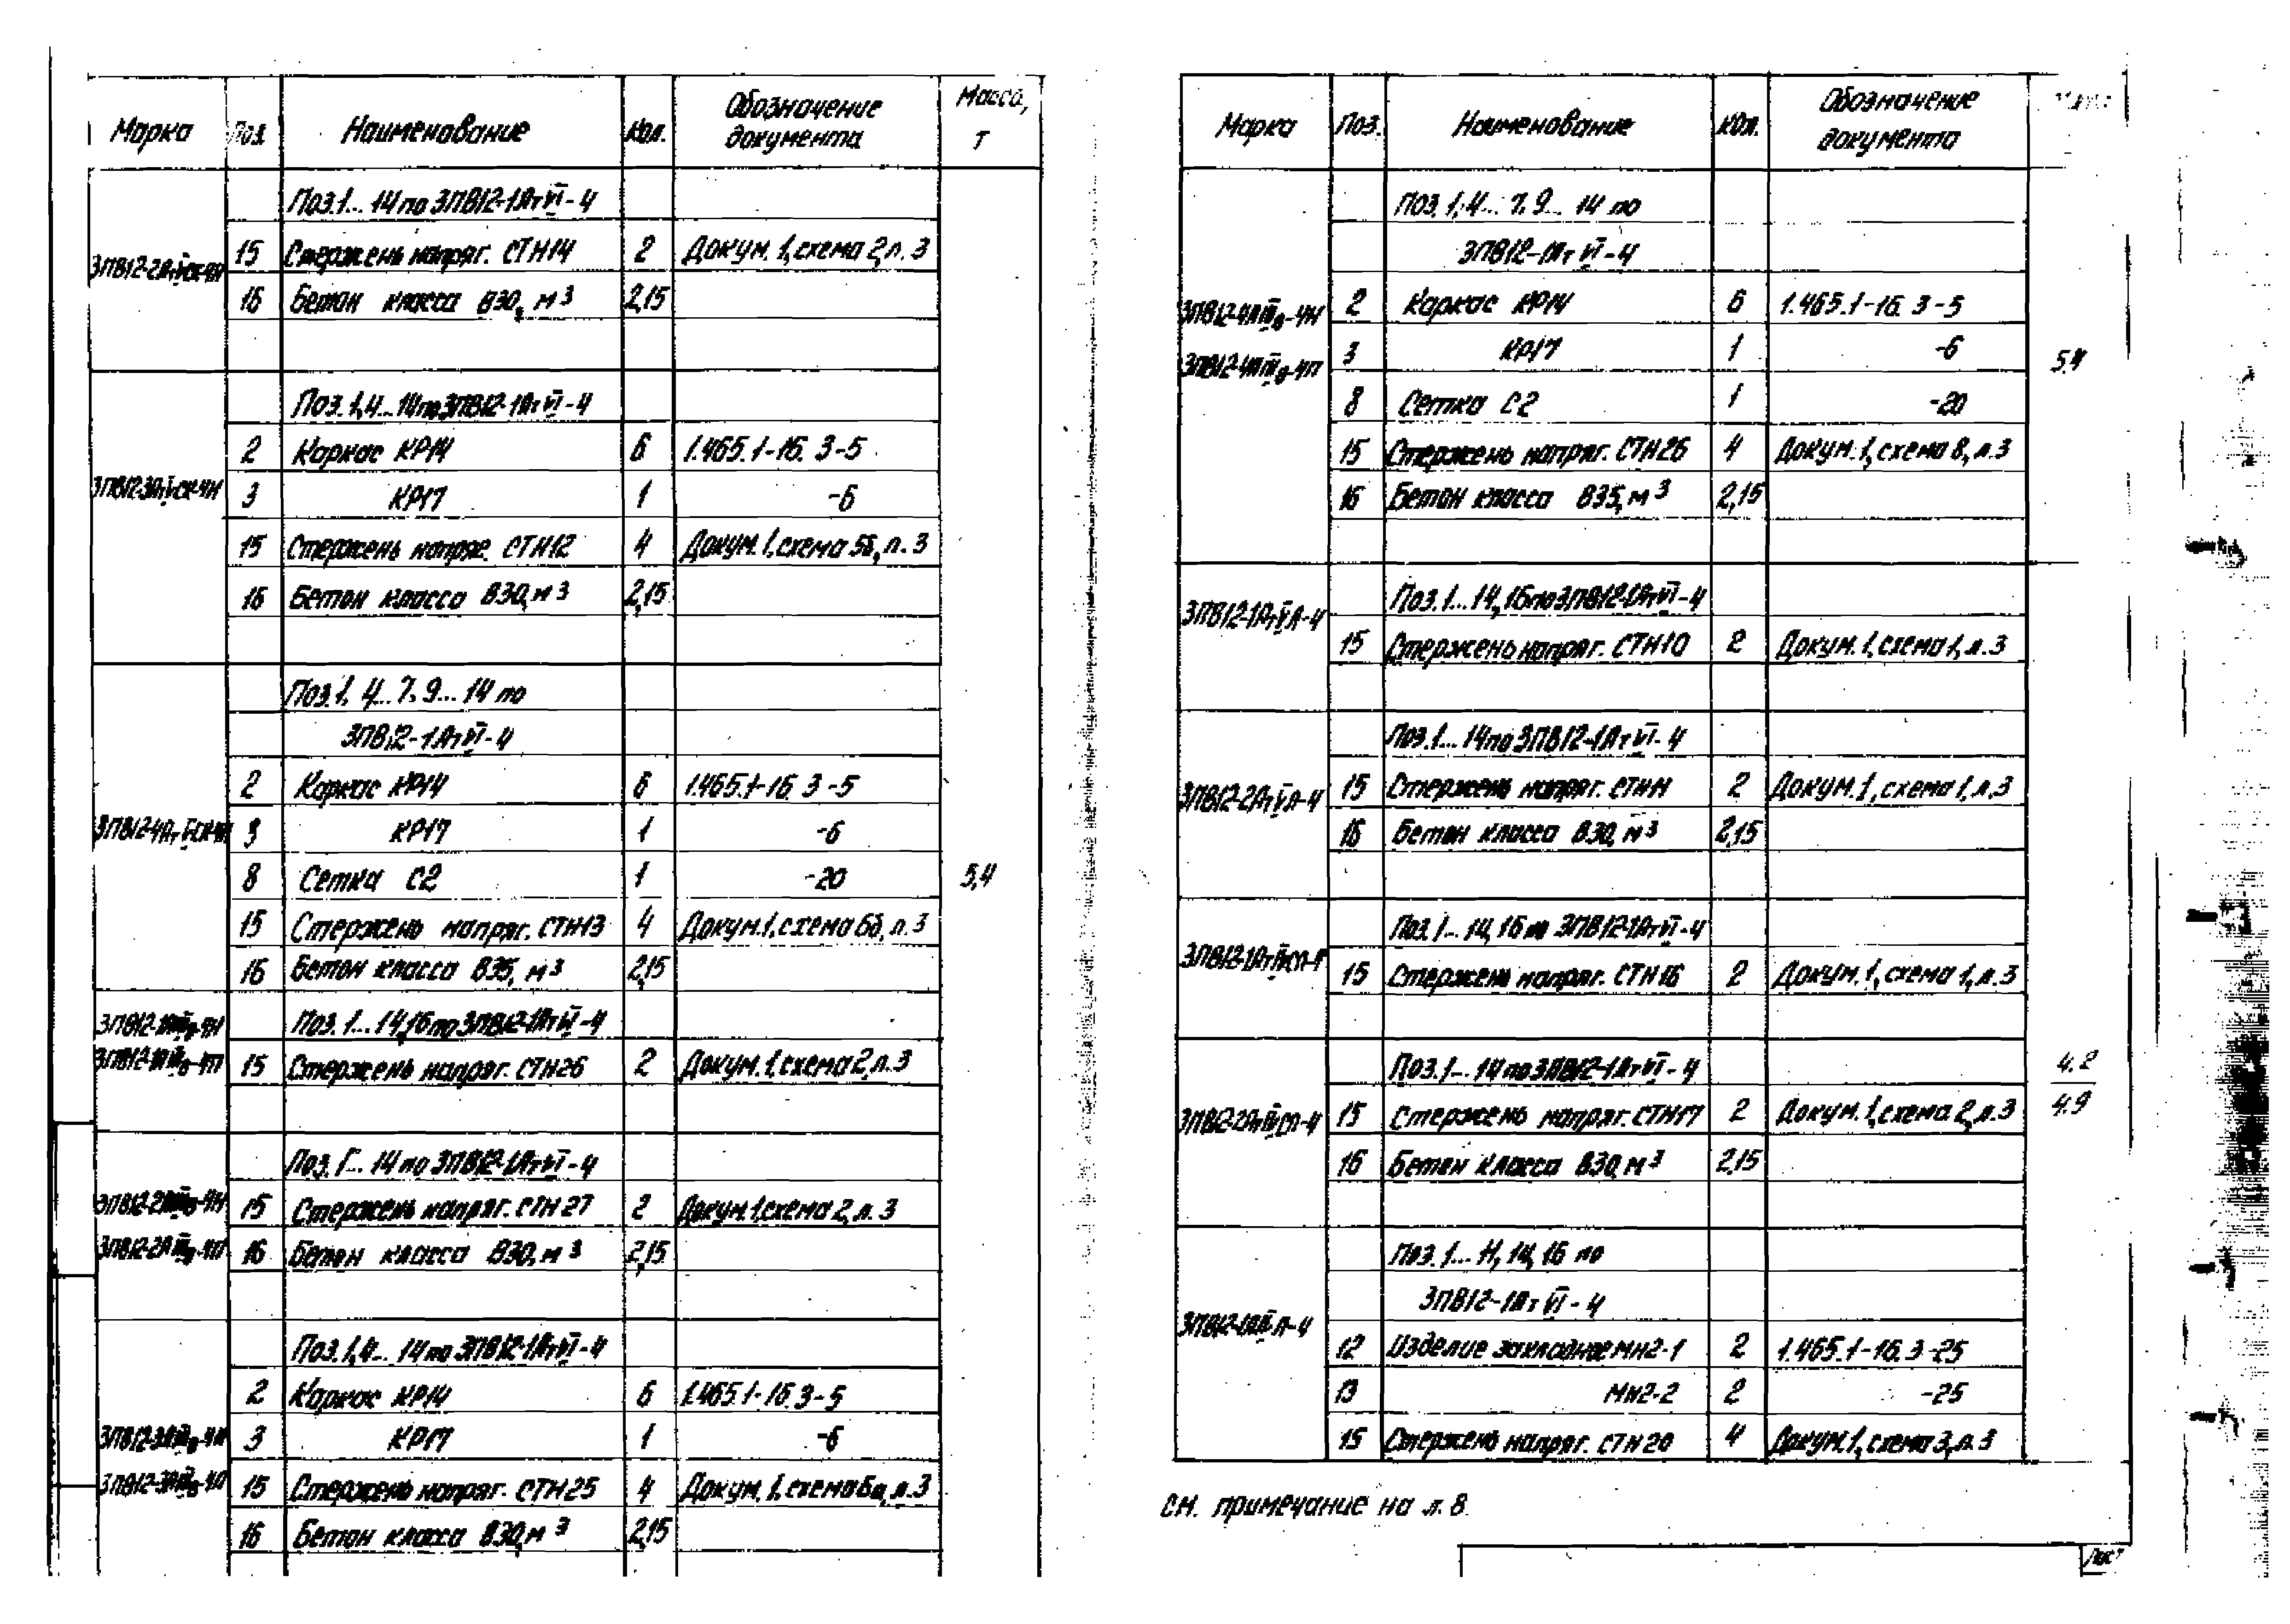 Марка Поз. Наименование Кол. Обозначение документа Масса, т
Поз.1... 14 по 3ПВ12-1АтVI-4
3ПВ12-2АтVСК-4Н 15 Стержень напряг. СТН14 2 Докум. 1, схема 2, л. 3
16 Бетон класса В30, м³ 2,15
Поз. 1,4... 14 по 3ПВ12-1АтVI-4
2 Каркас КР14 6 1.465.1-16. 3-5
3ПВ12-3АтVСК-4Н 3 КР17 1 -6
15 Стержень напряг. СТН12 4 Докум. 1, схема 5б, л. 3
16 Бетон класса В30, м³ 2,15
Поз. 1, 4... 7, 9... 14 по
3ПВ12-1АтVI-4
2 Каркас КР14 6 1.465.1-16. 3-5
3ПВ12-4АтVСК-4Н 3 КР17 1 -6
8 Сетка С2 1 -20 5,4
15 Стержень напряг. СТН13 4 Докум. 1, схема 6б, л. 3
16 Бетон класса В35, м³ 2,15
3ПВ12-1АIIIв-4Н Поз. 1... 14,16 по 3ПВ12-1АтVI-4
3ПВ12-1АIIIв-4П 15 Стержень напряг. СТН26 2 Докум. 1, схема 2, л. 3
Поз. 1... 14 по 3ПВ12-1АтVI-4
3ПВ12-2АIIIв-4Н 15 Стержень напряг. СТН27 2 Докум. 1, схема 2, л. 3
3ПВ12-2АIIIв-4П 16 Бетон класса В30, м³ 2,15
Поз. 1,4... 14 по 3ПВ12-1АтVI-4
2 Каркас КР14 6 1.465.1-16. 3-5
3ПВ12-3АIIIв-4Н 3 КР17 1 -6
3ПВ12-3АIIIв-4П 15 Стержень напряг. СТН25 4 Докум. 1, схема 6а, л. 3
16 Бетон класса В30, м³ 2,15
Марка Поз. Наименование Кол. Обозначение документа
Поз. 1, 4... 7, 9... 14 по
3ПВ12-1АтVI-4
3ПВ12-4АIIIв-4Н 2 Каркас КР14 6 1.465.1-16. 3-5
3ПВ12-4АIIIв-4П 3 КР17 1 -6 5,4
8 Сетка С2 1 -20
15 Стержень напряг. СТН26 4 Докум. 1, схема 8, л. 3
16 Бетон класса В35, м³ 2,15
Поз. 1... 14, 16 по 3ПВ12-1АтVI-4
3ПВ12-1АтVЛ-4 15 Стержень напряг. СТН10 2 Докум. 1, схема 1, л. 3
Поз. 1... 14 по 3ПВ12-1АтVI-4
3ПВ12-2АтVЛ-4 15 Стержень напряг. СТН11 2 Докум. 1, схема 1, л. 3
16 Бетон класса В30, м³ 2,15
Поз. 1... 14, 16 по 3ПВ12-1АтVI-4
15 Стержень напряг. СТН16 2 Докум. 1, схема 1, л. 3
Поз. 1... 14 по 3ПВ12-1АтVI-4 4.2
15 Стержень напряг. СТН17 2 Докум. 1, схема 2, л. 3 4.9
16 Бетон класса В30, м³ 2,15
Поз. 1... 11, 14, 16 по
3ПВ12-1АтVI-4
12 Изделие закладное МН2-1 2 1.465.1-16. 3-25
13 МН2-2 2 -25
15 Стержень напряг. СТН20 4 Докум. 1, схема 3, л. 3
см. примечание на л. 8.
Лист